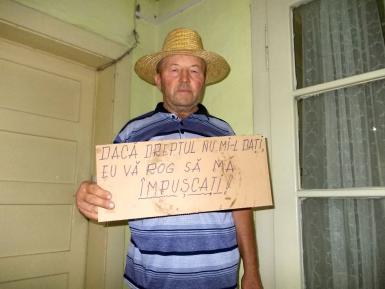 DACĂ DREPTUL NU MI-L DAȚI,
EU VĂ ROG SĂ MĂ
ÎMPUȘCAȚI!